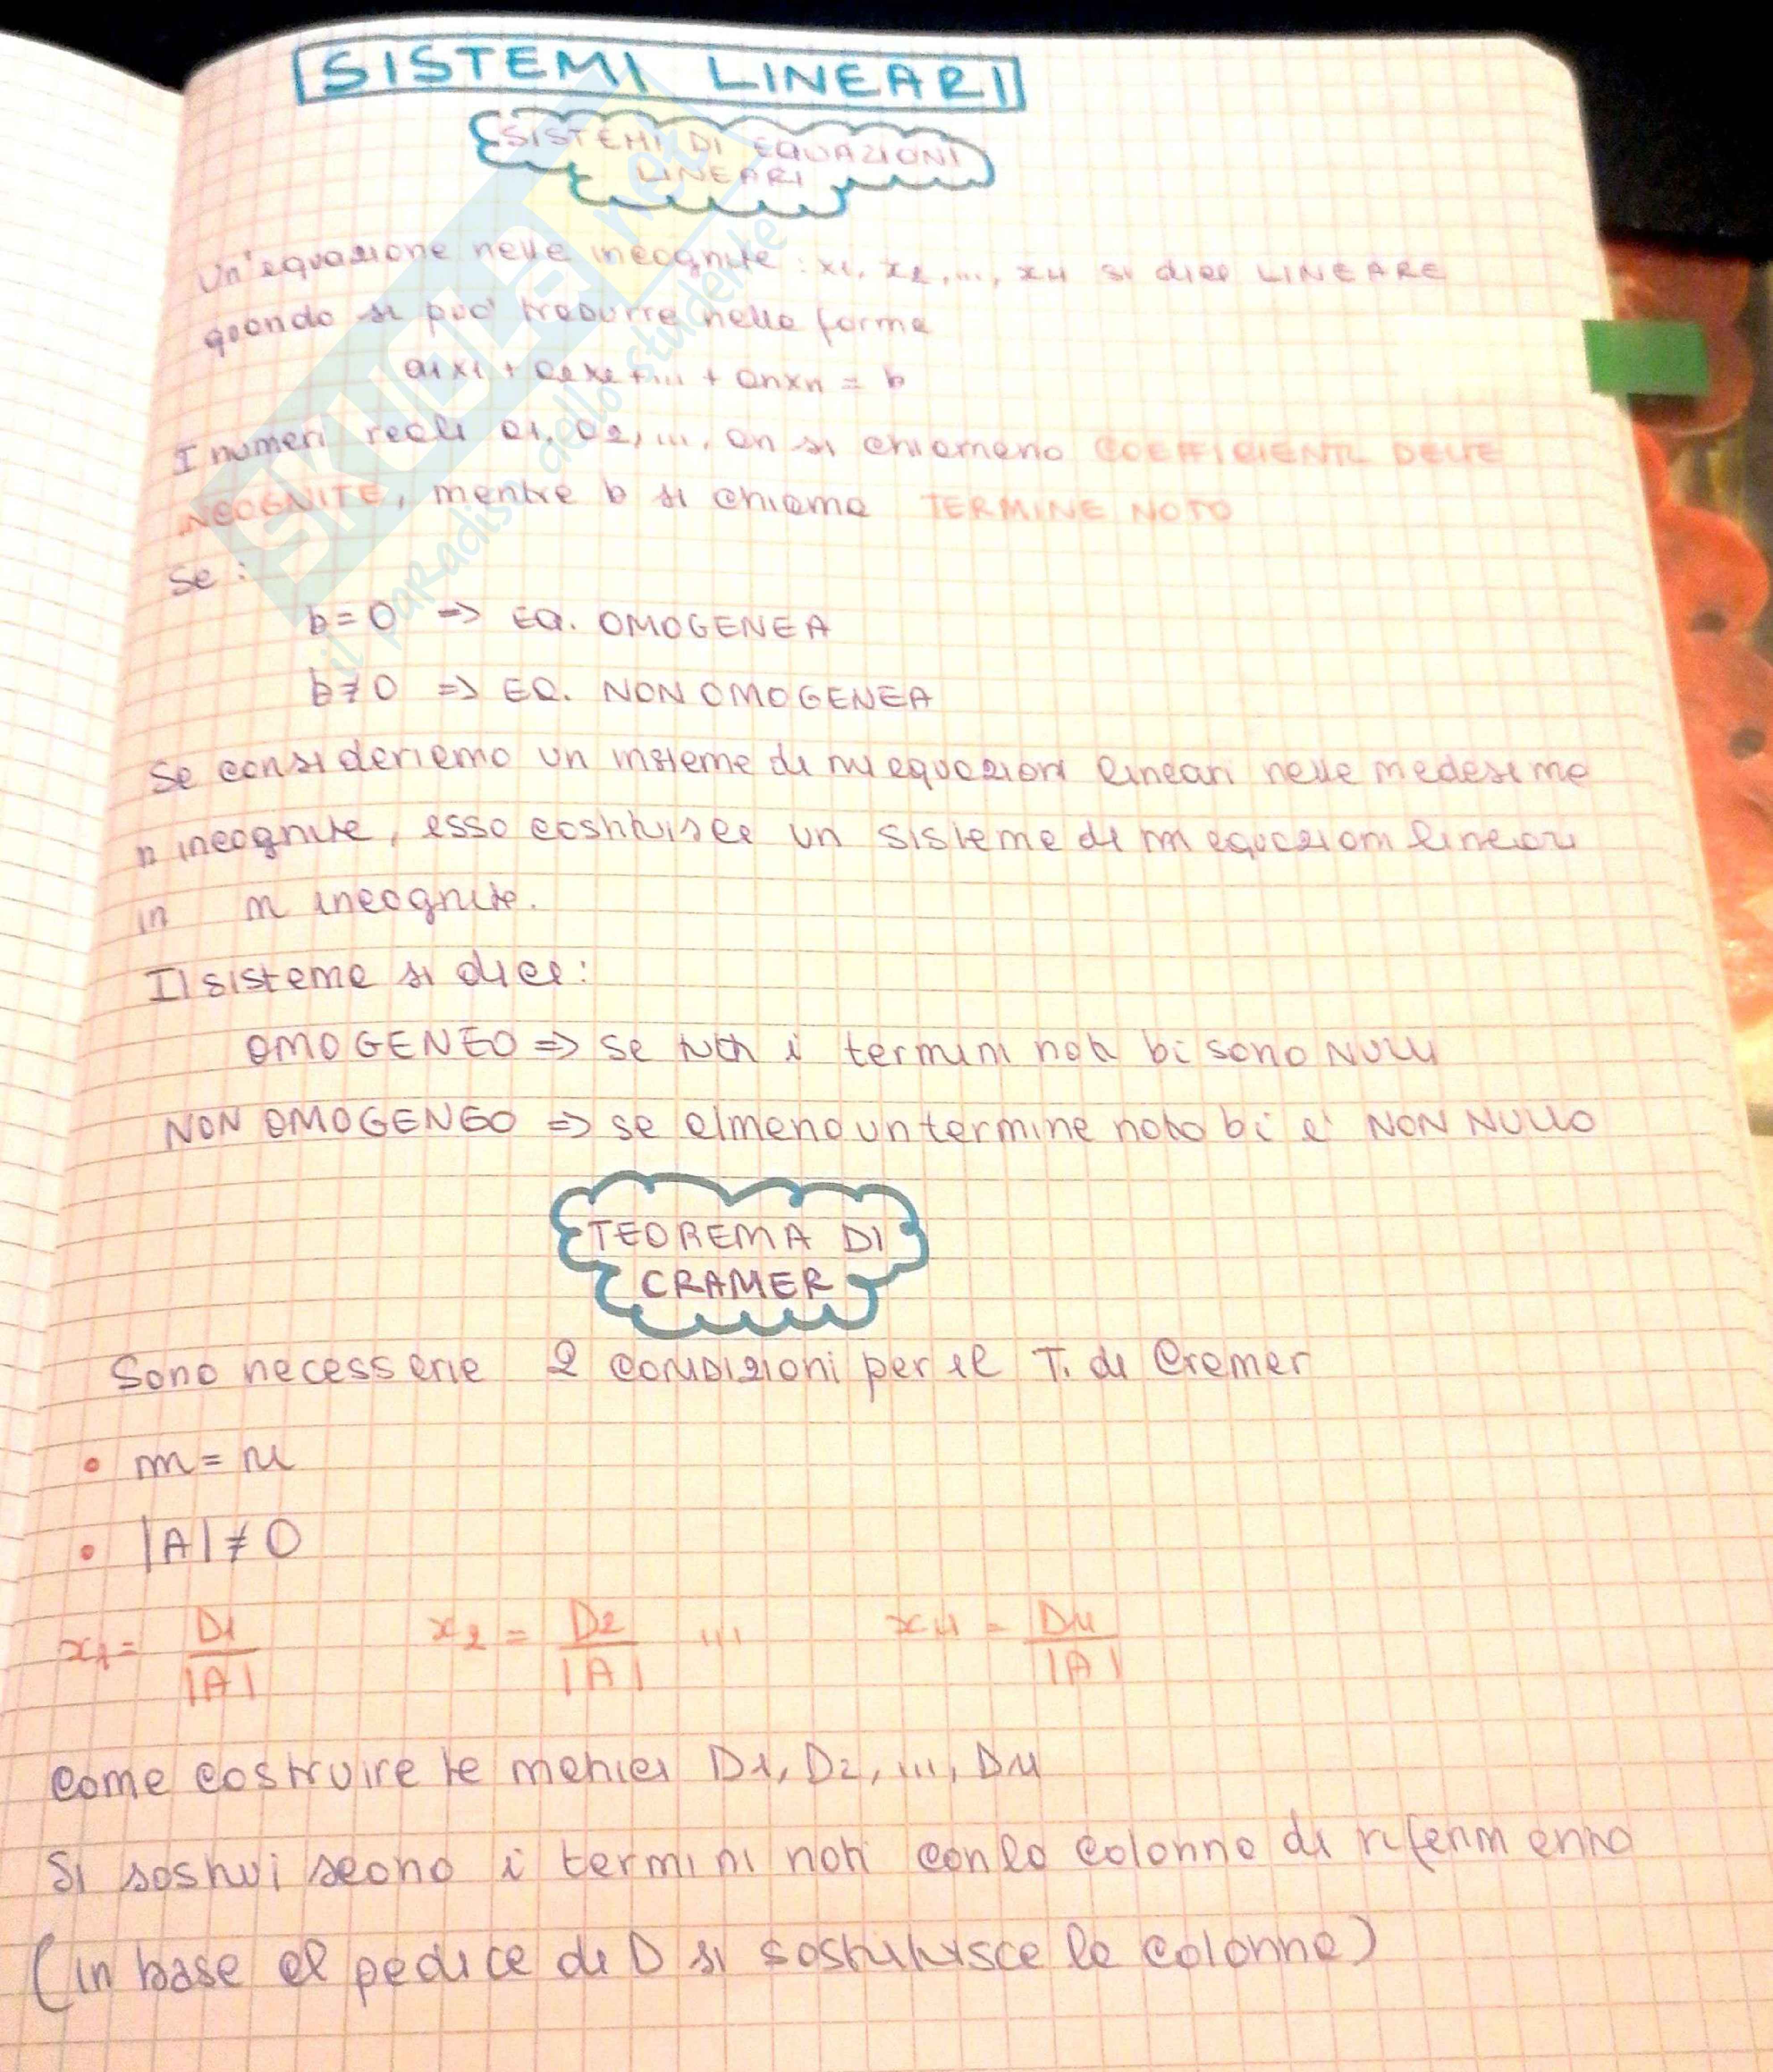 SISTEMI LINEARI
SISTEMI DI EQUAZIONI
LINEARI
Un'equazione nelle incognite: x1, x2, ..., xn si dice LINEARE
quando si può tradurre nella forma
a1x1 + a2x2 + ... + anxn = b
I numeri reali a1, a2, ..., an si chiamano COEFFICIENTI DELLE
INCOGNITE, mentre b si chiama TERMINE NOTO
Se:
b = 0 => EQ. OMOGENEA
b ≠ 0 => EQ. NON OMOGENEA
Se consideriamo un insieme di m equazioni lineari nelle medesime
n incognite, esso costituisce un sistema di m equazioni lineari
in n incognite.
Il sistema si dice:
OMOGENEO => se tutti i termini noti bi sono NULLI
NON OMOGENEO => se almeno un termine noto bi è NON NULLO
TEOREMA DI
CRAMER
Sono necessarie 2 condizioni per il T. di Cramer
• m = n
• |A| ≠ 0
x1 = D1/|A| x2 = D2/|A| ... xn = Dn/|A|
Come costruire le matrici D1, D2, ..., Dn
Si sostituiscono i termini noti con la colonna di riferimento
(in base al pedice di D si sostituisce la colonna)
SKUOLA.net
il paradiso dello studente